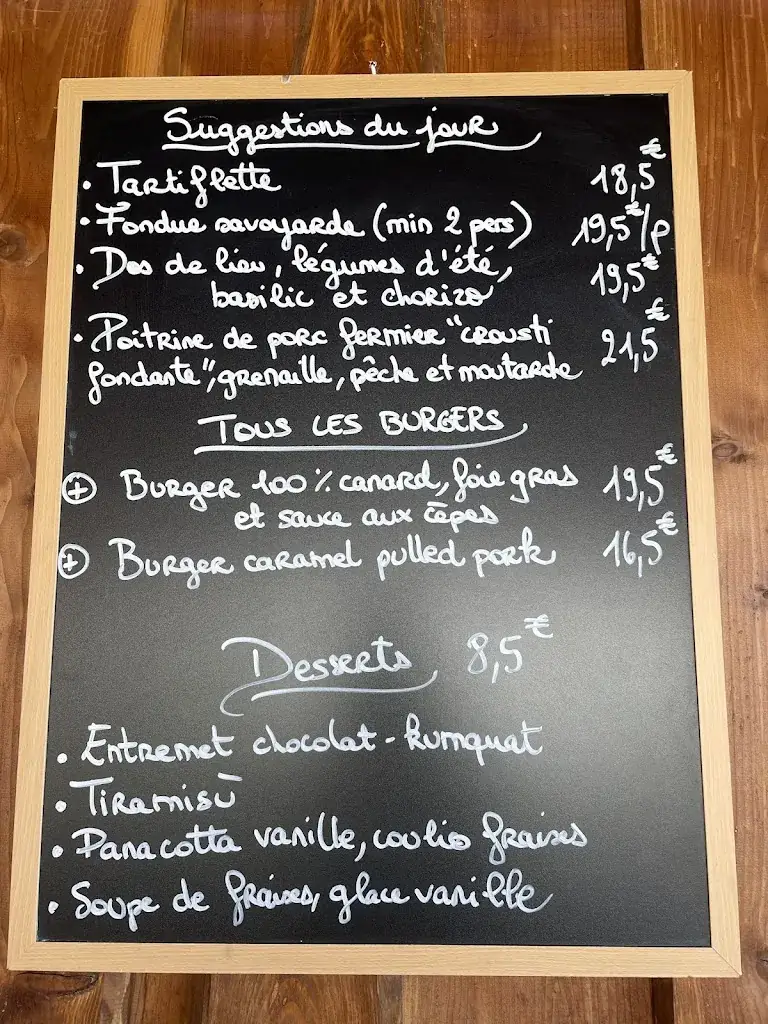 Suggestions du jour
• Tartiflette 18,5€
• Fondue savoyarde (min 2 pers) 19,5€/p
• Dos de lieu, légumes d'été, 19,5€
basilic et chorizo
• Poitrine de porc fermier "crousti 21,5€
fondante", grenaille, pêche et moutarde
TOUS LES BURGERS
+ Burger 100% canard, foie gras 19,5€
et sauce aux cèpes
+ Burger caramel pulled pork 16,5€
Desserts 8,5€
• Entremet chocolat - kumquat
• Tiramisù
• Panacotta vanille, coulis fraises
• Soupe de fraises, glace vanille